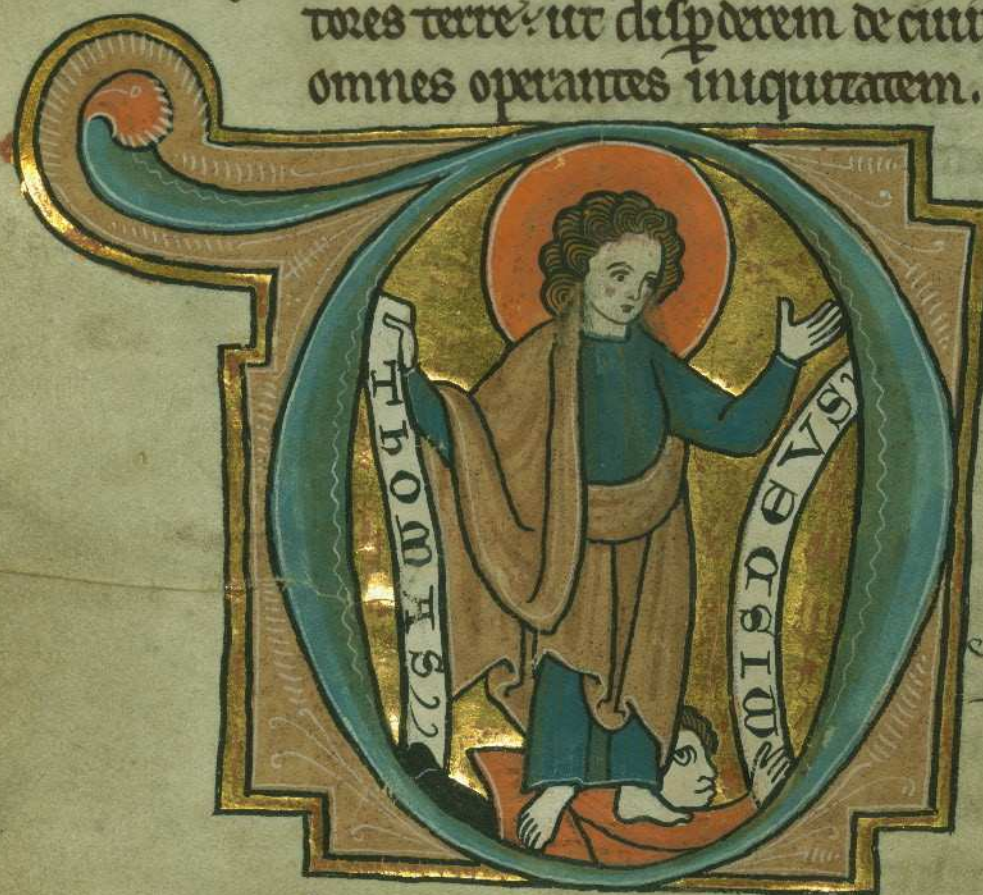 tores terre: ut disꝑderem de ciuit
omnes operantes iniquitatem.
ThOMAS
MISDEVS